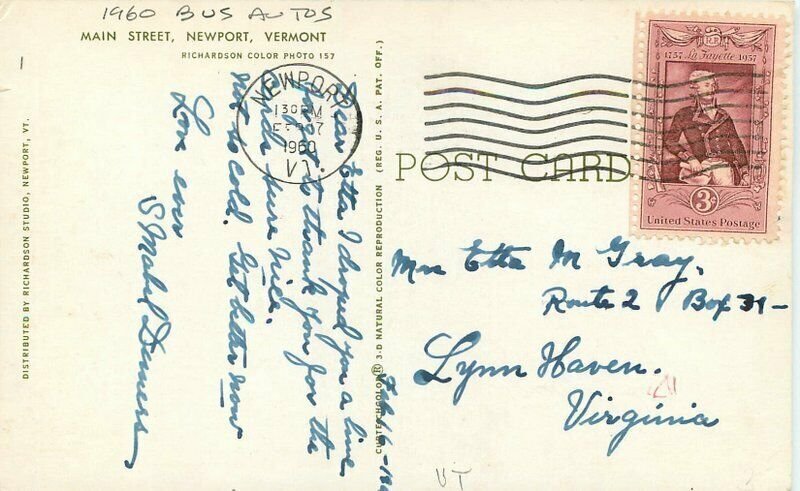 1960 BUS AUTOS
MAIN STREET, NEWPORT, VERMONT
RICHARDSON COLOR PHOTO 157
DISTRIBUTED BY RICHARDSON STUDIO, NEWPORT, VT.
Dear Etta I droped you a line
to thank you for the
sure nice.
not so cold. Get better now
Love ever
S Mabel Demers
Feb 16-
CURTEICHCOLOR ® 3-D NATURAL COLOR REPRODUCTION (REG. U. S. A. PAT. OFF.)
NEWPORT
130 PM
1960
VT.
POST CARD
1757 La Fayette 1957
3¢
United States Postage
Mrs Etta M Gray,
Route 2 Box 31-
Lynn Haven.
Virginia
VT